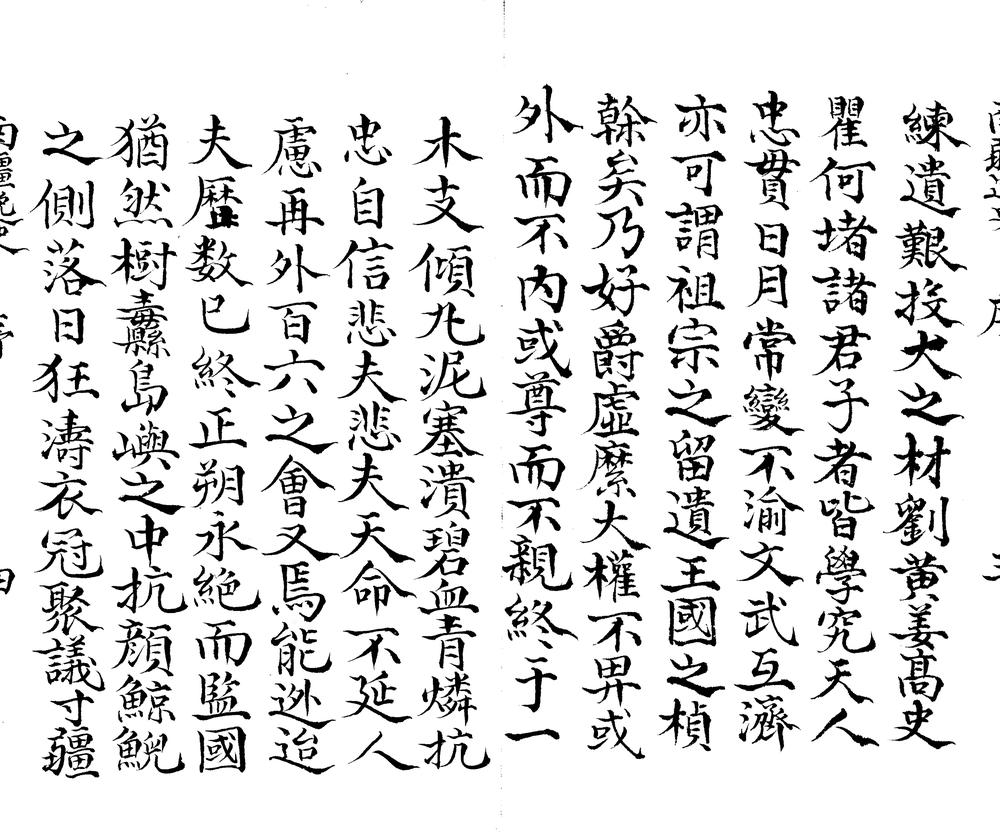 練遺艱投大之材劉黄姜高史
瞿何堵諸君子者皆學究天人
忠貫日月常變不渝文武互濟
亦可謂祖宗之留遺王國之楨
榦矣乃好爵虛縻大權不畀或
外而不内或尊而不親終于一
木支傾丸泥塞潰碧血青燐抗
忠自信悲夫悲夫天命不延人
慮再外百六之會又焉能迯迨
夫曆数已終正朔永絶而監國
猶然樹纛縣島嶼之中抗顔鯨鯢
之側落日狂濤衣冠聚議寸疆